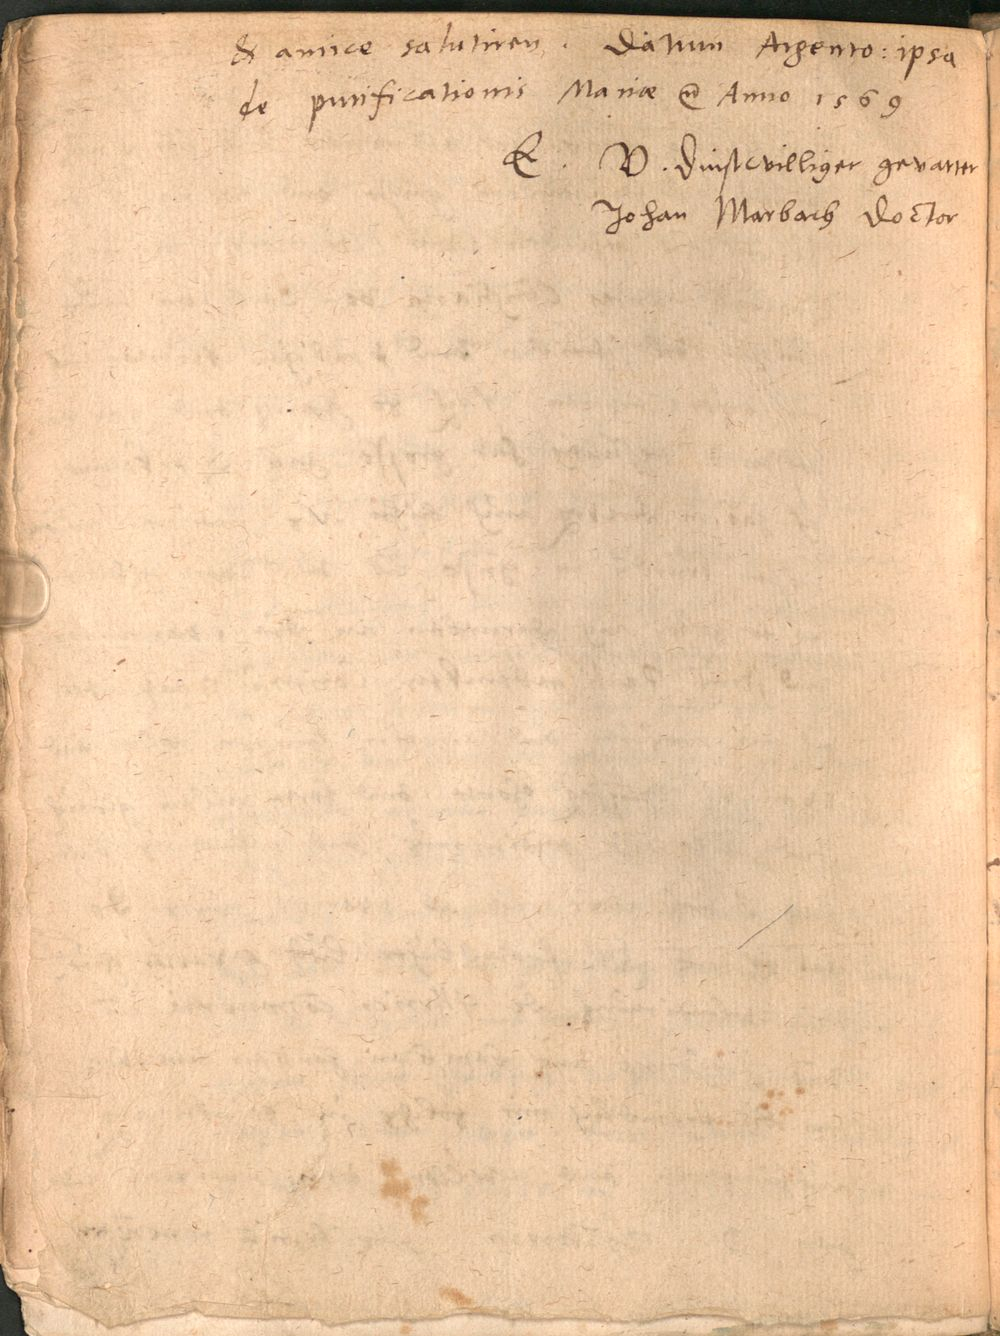 & amice salutiren. Datum Argento: ipsa
de purificationis Mariæ Anno 1569
E. W. Dinstwilliger gevatter
Johan Marbach Doctor